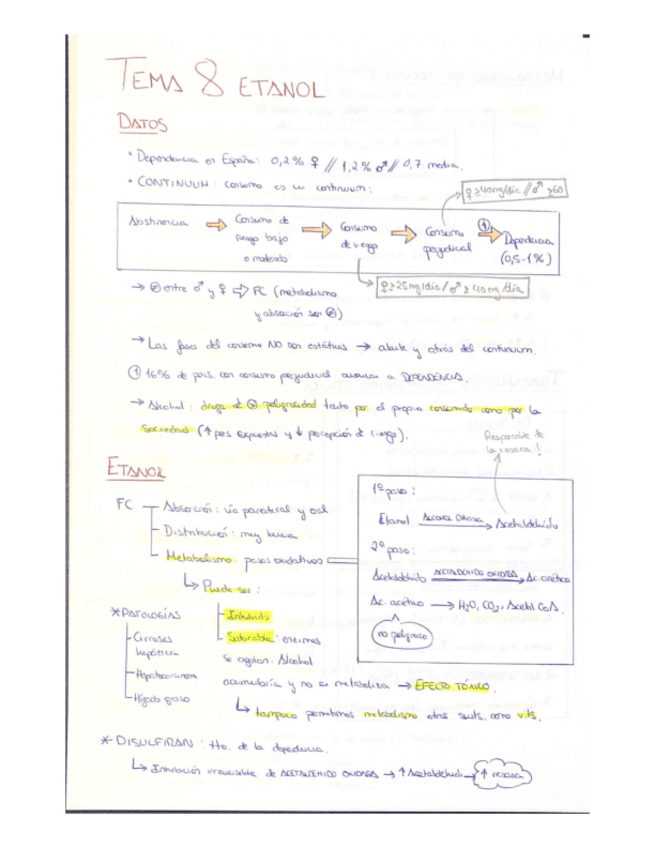 TEMA 8 ETANOL
DATOS
* Dependencia en España: 0,2% ♀ // 1,2% ♂ // 0,7 media.
♀ ≥40mg/día // ♂ ≥60
* CONTINUUM: consumo es un continuum:
Abstinencia ⇨ Consumo de riesgo bajo o moderado ⇨ Consumo de riesgo ⇨ Consumo perjudicial ① ⇨ Dependencia (0,5-1%)
♀ ≥25mg/día / ♂ ≥ 40mg/día
→ ≠ entre ♂ y ♀ ⇨ FC (metabolismo
y absorción son ≠)
→ Las fases del consumo NO son estáticas → alante y atrás del continuum.
① 16% de pers. con consumo perjudicial avanza a DEPENDENCIA.
→ Alcohol: droga de peligrosidad tanto por el propio consumido como por la
sociedad (↑ pers expuestas y ↓ percepción de riesgo).
Responsable de
la resaca!
ETANOL
FC
Absorción: vía parenteral y oral
Distribución: muy buena
Metabolismo: pasos oxidativos
↳ Puede ser:
Inhibido
Saturable: enzimas
se agotan. Alcohol
acumularía y no se metaboliza → EFECTO TÓXICO.
↳ tampoco permitimos metabolismo otras susts. como vits.
1º paso:
Etanol ALCOHOL DHASA → Acetaldehído
2º paso:
Acetaldehído ACETALDEHIDO OXIDASA → Ac. acético
Ac. acético → H₂O, CO₂, Acetil CoA.
no peligroso
* PATOLOGÍAS
Cirrosis
hepática
Hepatocarcinoma
Hígado graso
* DISULFIRAN: tto. de la dependencia.
↳ Inhibición irreversible de ACETALDEHIDO OXIDASA → ↑ Acetaldehído → ↑ resaca